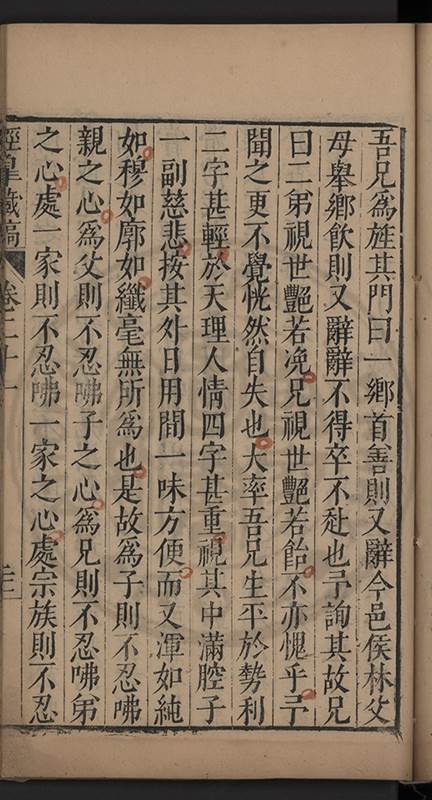 吾兄為旌其門曰一鄉首善則又辭今邑侯林父
母舉鄉飲則又辭辭不得卒不赴也予詢其故兄
曰二弟視世艷若凂兄視世艷若飴不亦愧乎予
聞之更不覺恍然自失也大率吾兄生平於勢利
二字甚輕於天理人情四字甚重視其中滿腔子
一副慈悲按其外日用間一味方便而又渾如純
如穆如廓如纖毫無所為也是故為子則不忍咈
親之心為父則不忍咈子之心為兄則不忍咈弟
之心處一家則不忍咈一家之心處宗族則不忍
經皇藏稿 卷二十一 三二